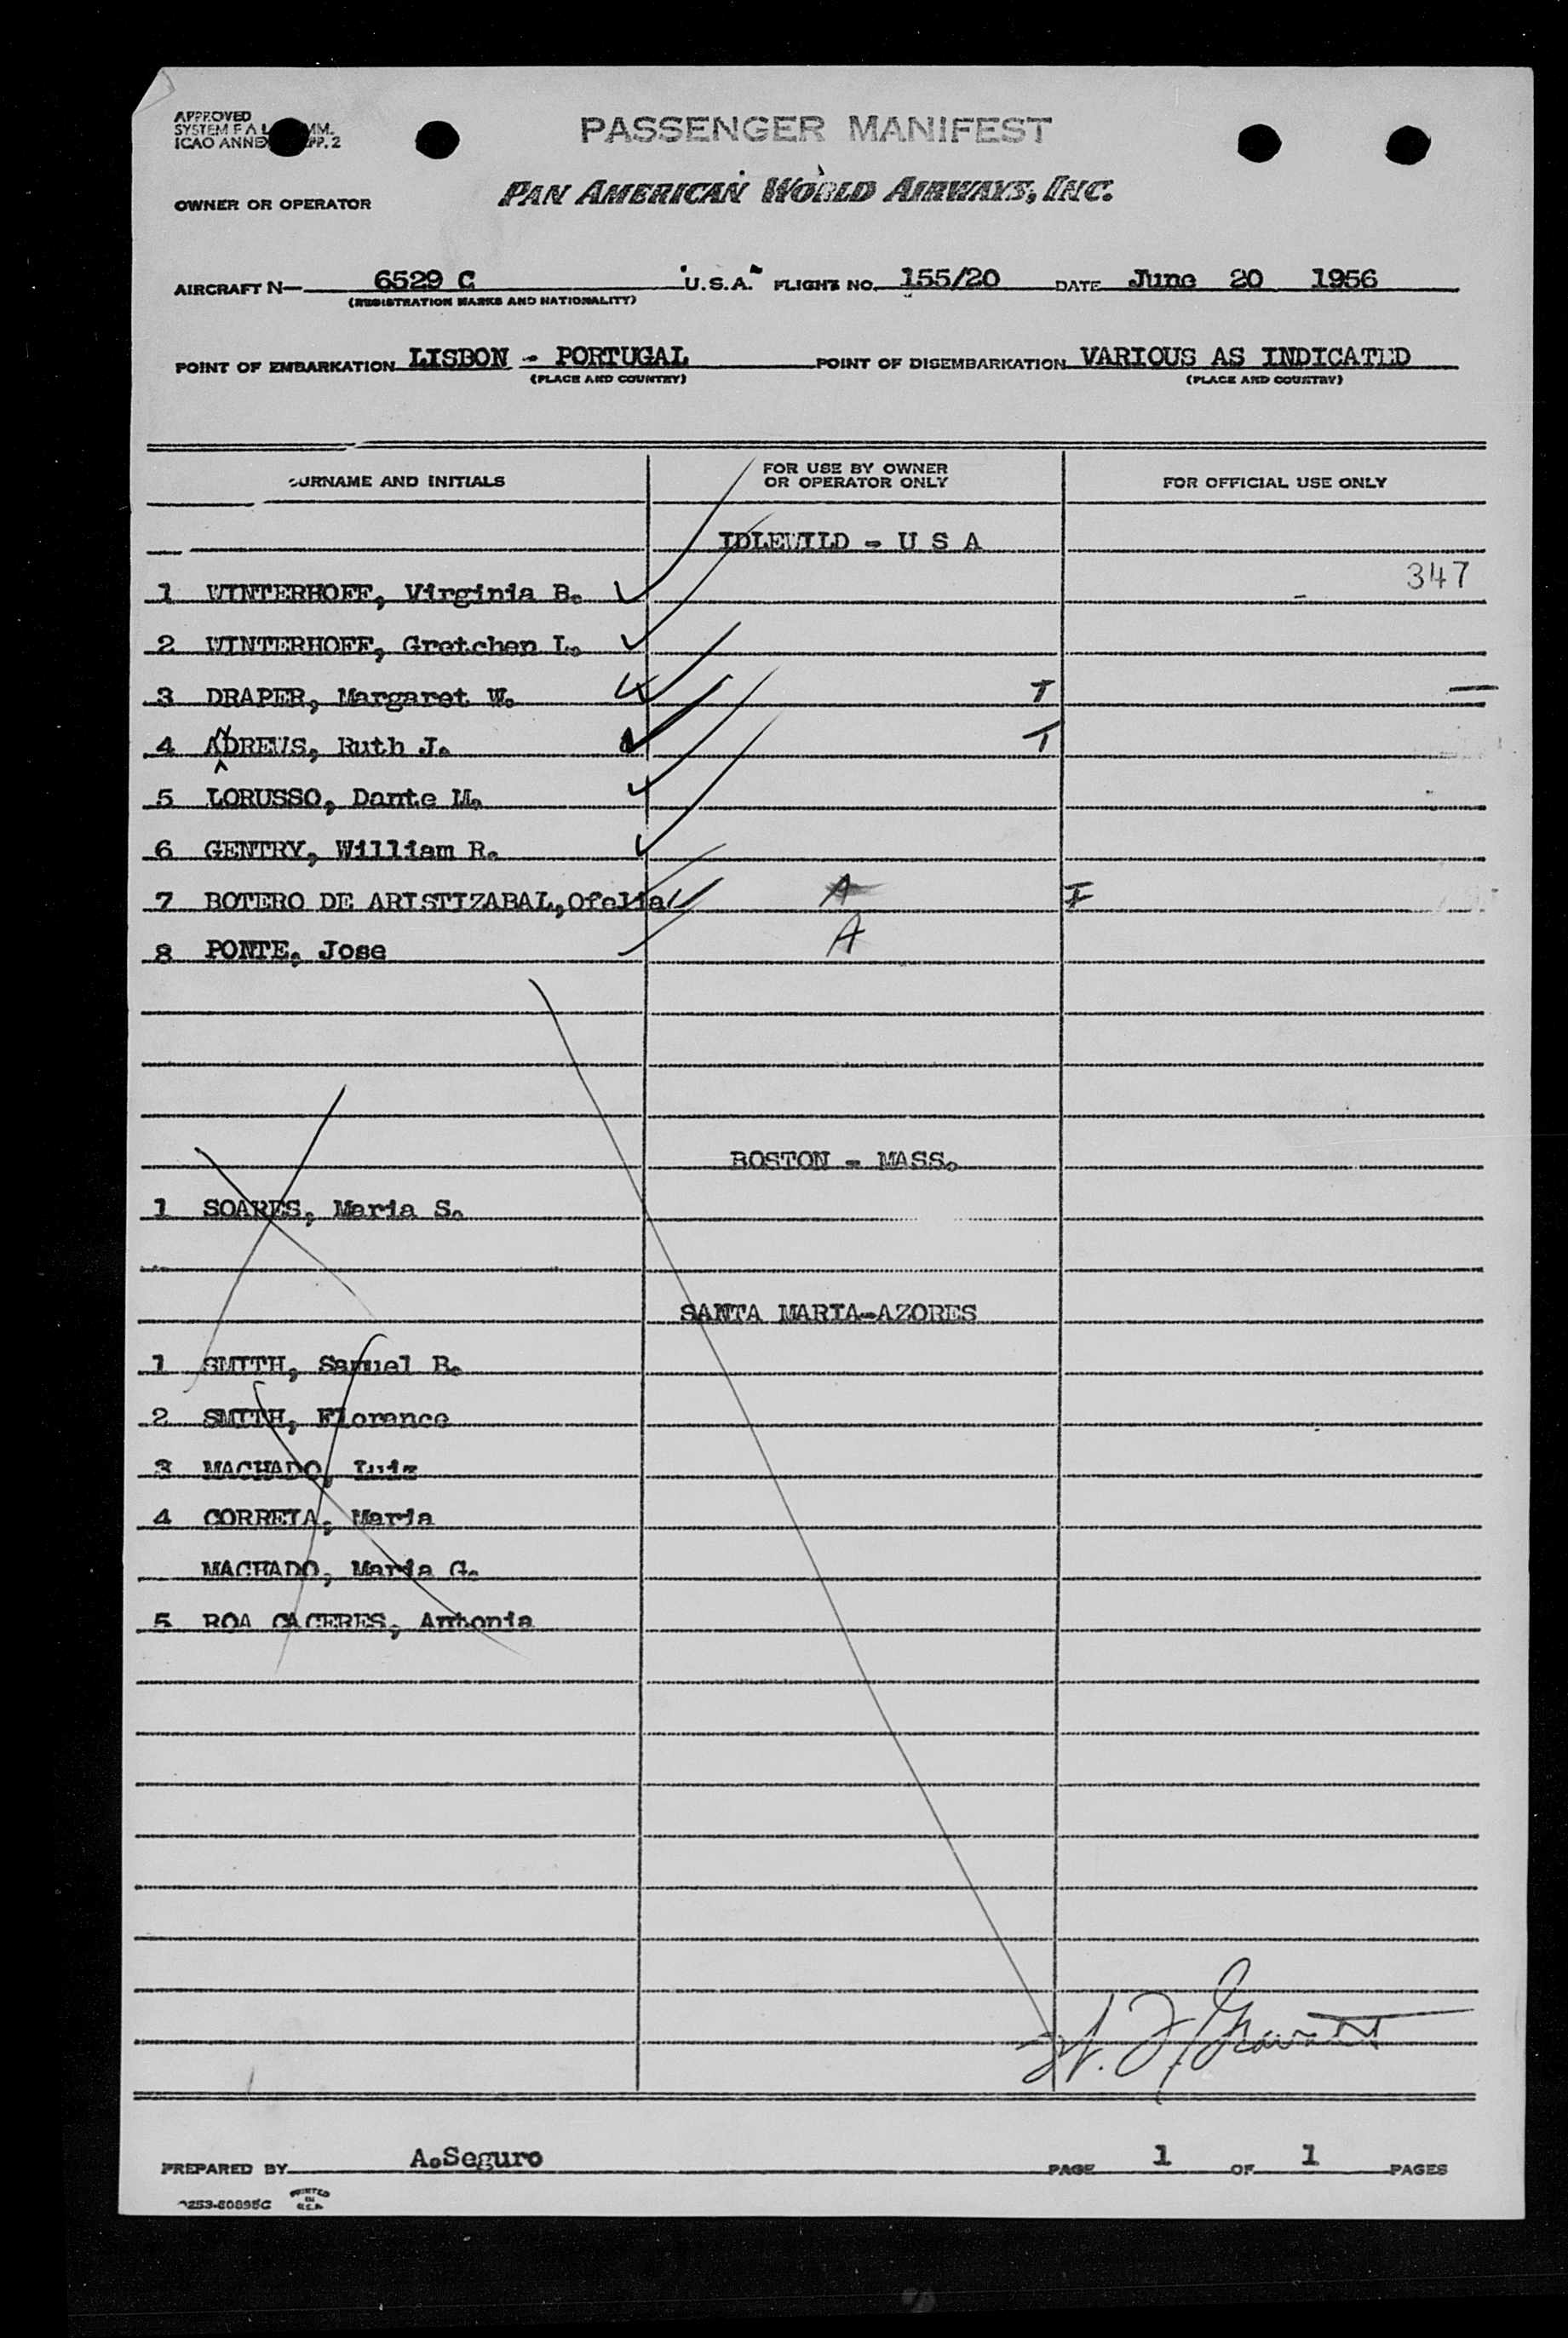 APPROVED
SYSTEM F A L MM.
ICAO ANNEX PP. 2
PASSENGER MANIFEST
OWNER OR OPERATOR PAN AMERICAN WORLD AIRWAYS, INC.
AIRCRAFT N— 6529 C "U.S.A." FLIGHT NO. 155/20 DATE June 20 1956
(REGISTRATION MARKS AND NATIONALITY)
POINT OF EMBARKATION LISBON - PORTUGAL POINT OF DISEMBARKATION VARIOUS AS INDICATED
(PLACE AND COUNTRY) (PLACE AND COUNTRY)
SURNAME AND INITIALS FOR USE BY OWNER OR OPERATOR ONLY FOR OFFICIAL USE ONLY
IDLEWILD - U S A
347
1 WINTERHOFF, Virginia B.
2 WINTERHOFF, Gretchen L.
3 DRAPER, Margaret W. T
4 ANDREWS, Ruth J. T
5 LORUSSO, Dante M.
6 GENTRY, William R.
7 BOTERO DE ARISTIZABAL, Ofelia A I
8 PONTE, Jose A
BOSTON - MASS.
1 SOARES, Maria S.
SANTA MARIA-AZORES
1 SMITH, Samuel B.
2 SMITH, Florence
3 MACHADO, Luiz
4 CORREIA, Maria
MACHADO, Maria G.
5 ROA CACERES, Antonia
PREPARED BY A.Seguro PAGE 1 OF 1 PAGES
PRINTED
IN
U.S.A.